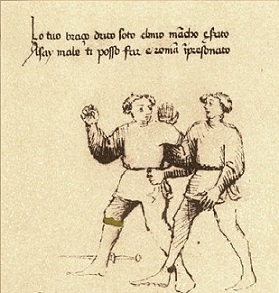 Lo tuo braço drito soto el mio mãcho e serato
Asay male ti posso far e romã in presonato